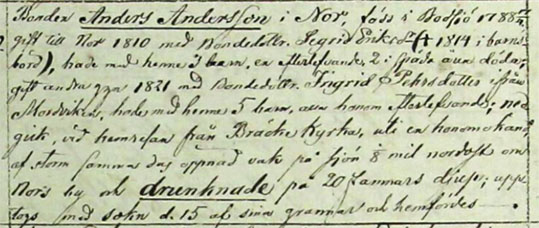 Bonden Anders Andersson i Nor, föds i Bodsjö 1788
gift till Nor 1810 med Bondedottr. Segrid Eriksd. († 1814 i barns
börd), hade med henne 3 barn, en efterlefvande, 2 i späda åren döda;
gift andra ggn 1821 med Bondedottr. Ingrid Pehrsdotter ifrån
Mordviken, hade med henne 5 barn, som honom efterlefvande; ned
gick vid hemresan från Bräcke Kyrka, uti en
af storm samma dag öppnad vak på sjön 1/8 mil nordost om
Nors by och drunknade på 20 famnars djup; upp
togs med d. 15 af sina grannar och hemfördes.